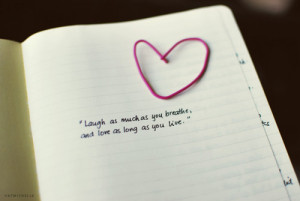 "Laugh as much as you breathe,
and love as long as you live."